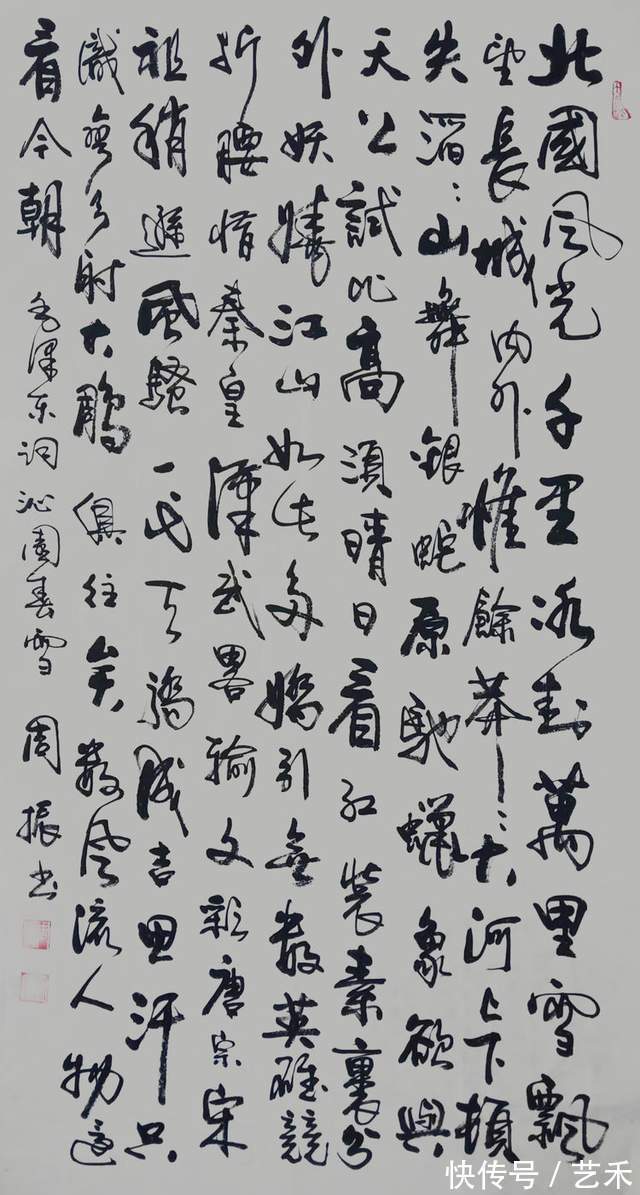 北國风光千里冰封萬里雪飄
望長城内外惟餘莽々大河上下頓
失滔々山舞銀蛇原馳蠟象欲與
天公試比高須晴日看红裝素裹分
外妖嬈江山如此多嬌引無數英雄競
折腰惜秦皇漢武畧输文彩唐宗宋
祖稍遜風騷一代天驕成吉思汗只
識彎弓射大鵰俱往矣數风流人物還
看今朝 毛泽东词沁園春雪 周振书
快传号 / 艺禾